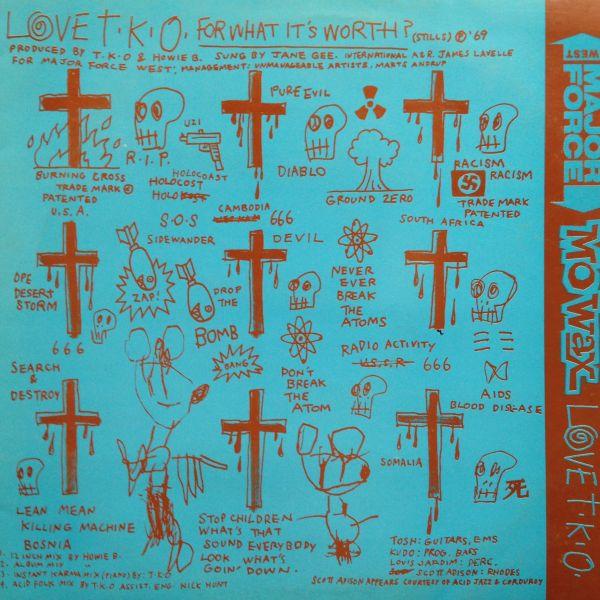 LOVE T.K.O. FOR WHAT IT'S WORTH? (STILLS) Ⓟ '69
PRODUCED BY T.K.O & HOWIE B. SUNG BY JANE GEE. INTERNATIONAL A&R. JAMES LAVELLE
FOR MAJOR FORCE WEST, MANAGEMENT: UNMANAGEABLE ARTISTS, MARTS ANDRUP
BURNING CROSS
TRADE MARK
PATENTED
U.S.A.
R.I.P.
UZI
HOLOCOAST
HOLOCOST
HOLO
PURE EVIL
DIABLO
GROUND ZERO
RACISM
RACISM
TRADE MARK
PATENTED
SOUTH AFRICA
S.O.S
CAMBODIA
666
OPE
DESERT
STORM
666
SIDEWANDER
ZAP!
DROP
THE
BOMB
BANG
DEVIL
NEVER
EVER
BREAK
THE
ATOMS
DON'T
BREAK
THE
ATOM
RADIO ACTIVITY
U.S.S.R 666
AIDS
BLOOD DISEASE
SEARCH
&
DESTROY
LEAN MEAN
KILLING MACHINE
BOSNIA
STOP CHILDREN
WHAT'S THAT
SOUND EVERYBODY
LOOK WHAT'S
GOIN' DOWN.
SOMALIA
死
1. 12 INCH MIX BY HOWIE B.
2. ALBUM MIX "
3. INSTANT KARMA MIX (PIANO) BY: T.K.O
4. ACID FOLK MIX BY T.K.O ASSIST. ENG. NICK HUNT
TOSH: GUITARS, EMS
KUDO: PROG. BARS
LOUIS JARDIM: PERC.
SCOTT ADISON: RHODES
SCOTT ADISON APPEARS COURTESY OF ACID JAZZ & CORDUROY
WEST
MAJOR
FORCE
MO WAX
LOVE T.K.O.